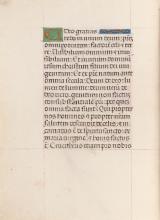 Deo gratias
redo in unum deum: prēm
omnipotentem: factorē celi et ter
re: visibilium omnium: et inui
sibilium: Et in unum dominū
iesum christum filium dei uni
genitum: Et ex pr̄e natum ante
omnia secula: Deum de deo: lu
men de lumine: deum verum
de deo vero. genitum non factū:
consubstantialē pr̄i: per quem
omnia facta sunt. Qui propter
nos homines et propter nr̄am
salutem descendit de celis: et in
carnatus est de spiritu sancto: ex
maria virgine: et homo factus ē
Crucifixus etiam pro nobis